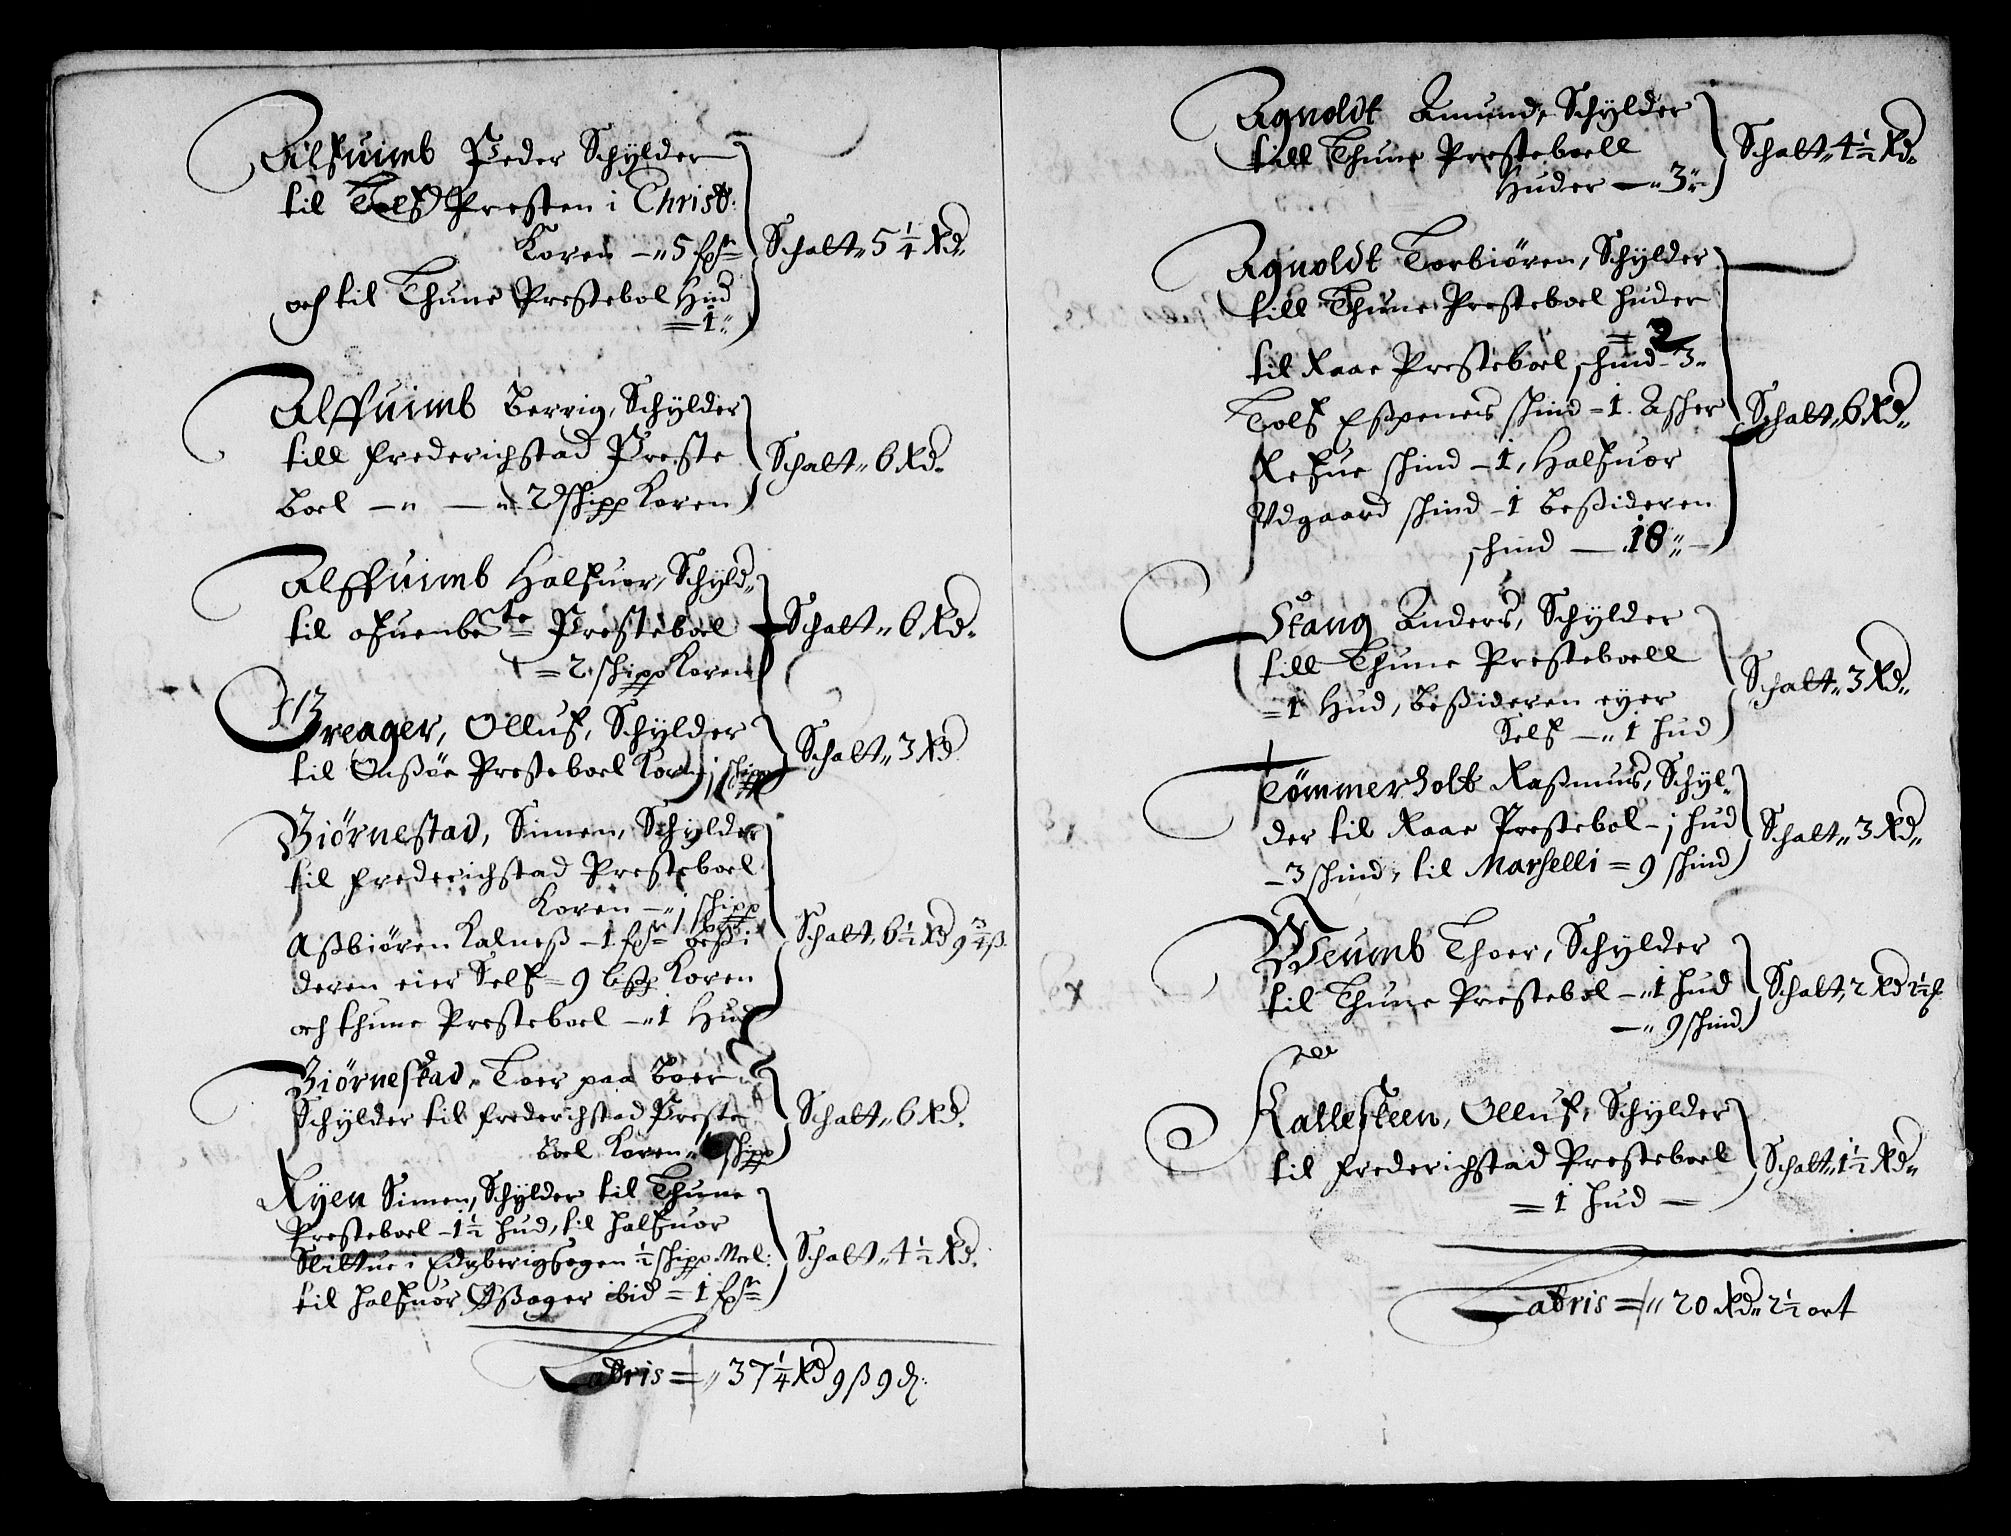 Alfuimb Peder Schylder
til Tolf Presten i Christ:
Koren — 5 fpr
och til Thune Prestebol Hud
= 1 ..
Schalt 5 1/4 Rd
Alffuimb Berrig, Schylder
till frederichstad Preste
boel — 2 schipp Koren
Schalt 6 Rd
Alffuimb Halfuor, Schyld
til ofuenbete Presteboel
= 2 schipp Koren
Schalt 6 Rd
Greager, Olluf, Schylder
til Onßøe Presteboel Korn j schipp
Schalt 3 Rd
Biørnestad, Simen, Schylder
til frederichstad Presteboel
Koren — j schipp
Aßbiøren Kalneß — 1 fpr beßi
deren eier Self = 9 bißp Koren
och thune Presteboel — 1 Hud
Schalt 6 1/2 Rd 9 3/4 ß
Biørnestad, Toer paa Boer
Schylder til frederichstad Preste
boel Koren schipp
Schalt 6 Rd
Ryen Simen, Schylder til Thune
Presteboel — 1 1/2 hud, til Halfuor
i Edzbergsogen 1/2 schipp Meel:
til Halfuor Oßager ibid = 1 fpr
Schalt 4 1/2 Rd
Latris = 37 1/4 Rd 9 ß 9 d:
Agnoldt Amund, Schylder
till Thune Presteboell
Huder — 3
Schalt 4 1/2 Rd
Agnoldt Torbiøren, Schylder
till Thune Presteboel huder
= 2
til Raae Presteboel schind 3
Tolf Eßpenens schind — 1 Asher
Refue schind — 1, Halfuor
Vdgaard schind — 1 beßideren
schind — 18
Schalt 6 Rd
Stang Anders, Schylder
till Thune Presteboell
= 1 Hud, beßideren eyer
Self — 1 hud
Schalt 3 Rd
Tømmerholt Raßmus, Schyl-
der til Raae Prestebol — j hud
— 3 schind, til Marselli = 9 schind
Schalt 3 Rd
Weumb Thoer, Schylder
til Thune Prestebol — 1 hud
— 9 schind
Schalt 2 Rd 2 1/2
Kallesteen, Olluf, Schylder
til frederichstad Presteboel
= 1 hud —
Schalt 1 1/2 Rd
Latris = 20 Rd 2 1/2 ort